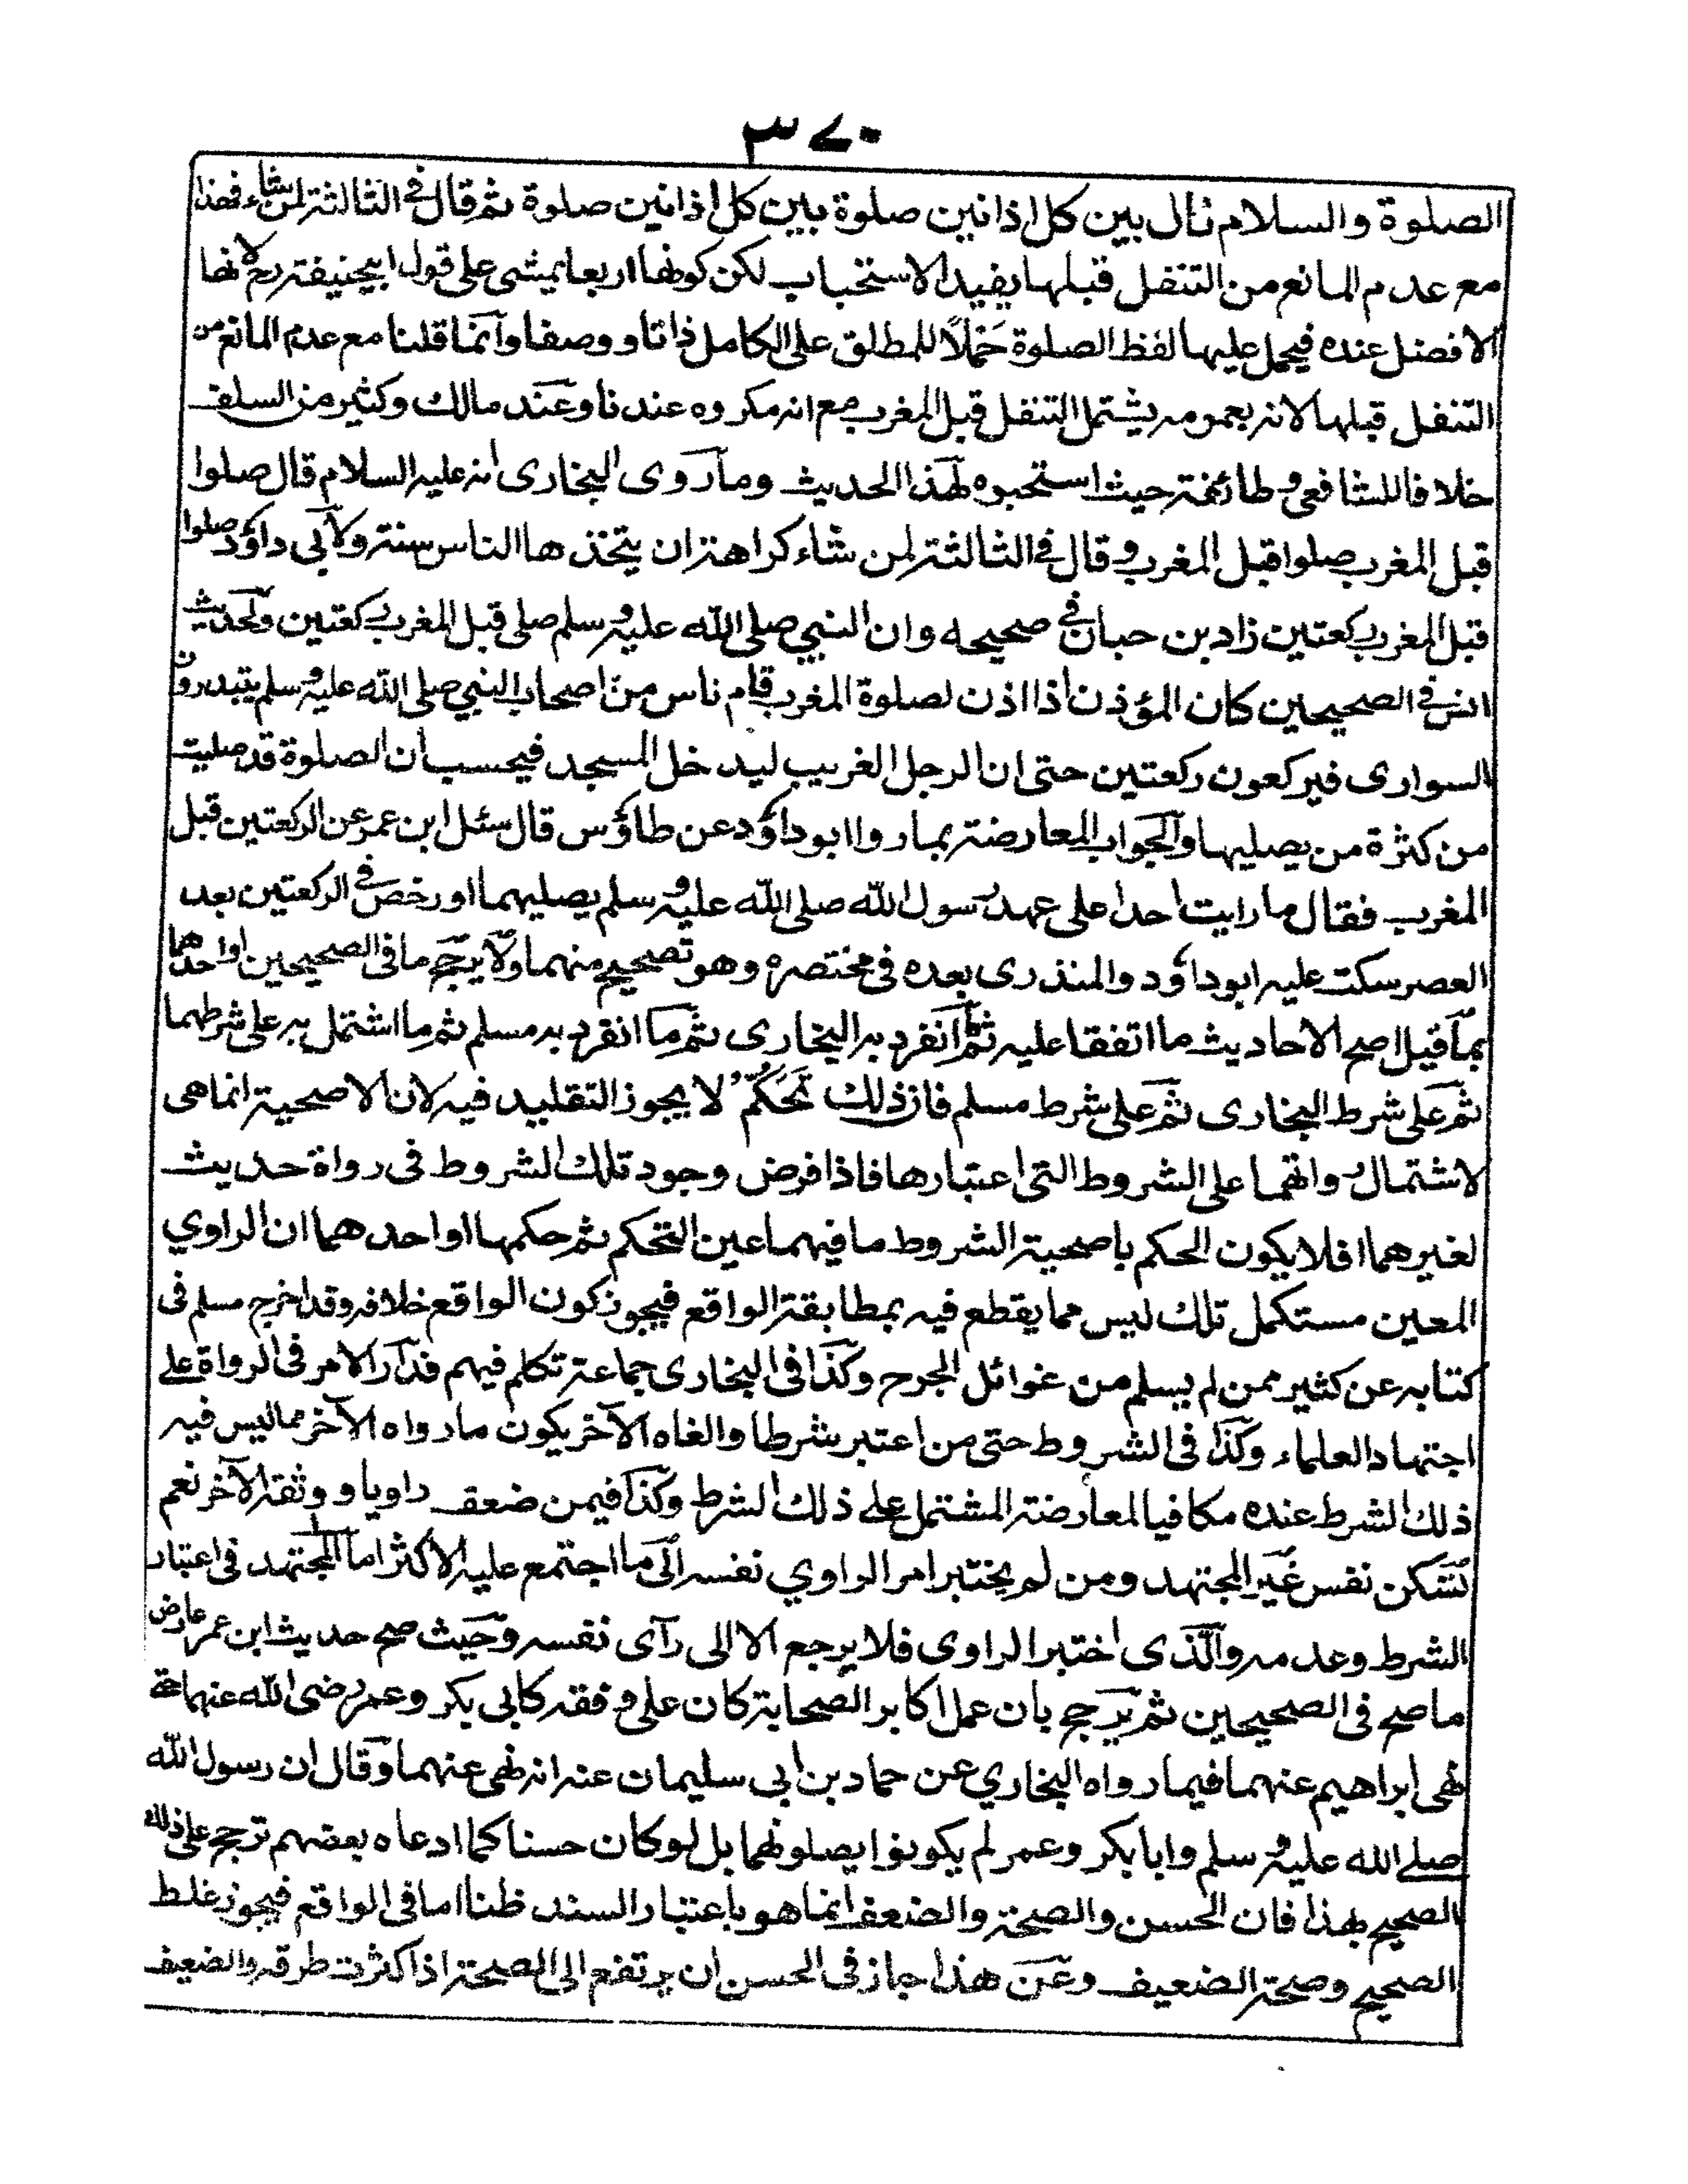 ٣٧٠
الصلوة والسلام قال بين كل اذانين صلوة بين كل اذانين صلوة ثم قال فى الثالثة لمن شاء فهذا
مع عدم المانع من التنفل قبلها يفيد الاستحباب لكن كونها اربعا يمشى على قول ابيحنيفة رح لانها
الافضل عنده فيحمل عليها لفظ الصلوة حَمْلاً للمطلق على الكامل ذاتا ووصفا وانما قلنا مع عدم المانع من
التنفل قبلها لانه بعمومه يشتمل التنفل قبل المغرب مع انه مكروه عندنا وعند مالك وكثير من السلف
خلافا للشافعى وطائفة حيث استحبوه لهذا الحديث وما روى البخارى انه عليه السلام قال صلوا
قبل المغرب صلوا قبل المغرب وقال فى الثالثة لمن شاء كراهة ان يتخذها الناس سنة ولابى داؤد صلوا
قبل المغرب ركعتين زاد بن حبان فى صحيحه وان النبي صلى الله عليه وسلم صلى قبل المغرب ركعتين ولحديث
انس فى الصحيحين كان المؤذن اذا اذن لصلوة المغرب قام ناس من اصحاب النبي صلى الله عليه وسلم يتبدرون
السوارى فيركعون ركعتين حتى ان الرجل الغريب ليدخل المسجد فيحسب ان الصلوة قد صليت
من كثرة من يصليها والجواب المعارضة بما رواا بوداؤد عن طاؤس قال سئل ابن عمر عن الركعتين قبل
المغرب فقال ما رايت احدا على عهد رسول الله صلى الله عليه وسلم يصليهما اورخص فى الركعتين بعد
العصر سكت عليه ابوداؤد والمنذرى بعده فى مختصره وهو تصحيح منهما ولا يرجح ما فى الصحيحين او احدهما
بما قيل اصح الاحاديث ما اتفقا عليه ثم انفرد به البخارى ثم ما انفرد به مسلم ثم ما اشتمل به على شرطهما
ثم على شرط البخارى ثم على شرط مسلم فان ذلك تَحَكُّمٌ لا يجوز التقليد فيه لان الاصحية انما هى
لاشتمال رواتهما على الشروط التى اعتبارها فاذا فرض وجود تلك الشروط فى رواة حديث
لغيرهما افلا يكون الحكم باصحية الشروط ما فيهما عين التحكم ثم حكمها او احدهما ان الراوي
المعين مستكمل تلك ليس مما يقطع فيه بمطابقة الواقع فيجوز كون الواقع خلافه وقد اخرج مسلم فى
كتابه عن كثير ممن لم يسلم من غوائل الجرح وكذا فى البخارى جماعة تكلم فيهم فدار الامر فى الرواة على
اجتهاد العلماء وكذا فى الشروط حتى من اعتبر شرطا والغاه الآخر يكون مارواه الآخر مما ليس فيه
ذلك الشرط عنده مكافيا لمعارضة المشتمل على ذلك الشرط وكذا فيمن ضعف راويا ووثقه الآخر نعم
تسكن نفس غير المجتهد ومن لم يختبر امر الراوي نفسه الى ما اجتمع عليه الاكثر اما المجتهد فى اعتبار
الشرط وعدمه والذى اختبر الراوى فلا يرجع الا الى رآى نفسه وحيث صح حديث ابن عمر عارض
ما صح فى الصحيحين ثم يرجح بان عمل اكابر الصحابة كان على وفقه كابى بكر وعمر رضى الله عنهما حتى
نهى ابراهيم عنهما فيما رواه البخاري عن حماد بن ابى سليمان عنه انه نهى عنهما وقال ان رسول الله
صلى الله عليه وسلم وابابكر وعمر لم يكونوا يصلونهما بل لوكان حسنا كما ادعاه بعضهم ترجح على ذلك
الصحيح بهذا فان الحسن والصحة والضعف انما هو باعتبار السند ظنا اما فى الواقع فيجوز غلط
الصحيح وصحة الضعيف وعن هذا جاز فى الحسن ان يرتفع الى الصحة اذا كثرت طرقه والضعيف